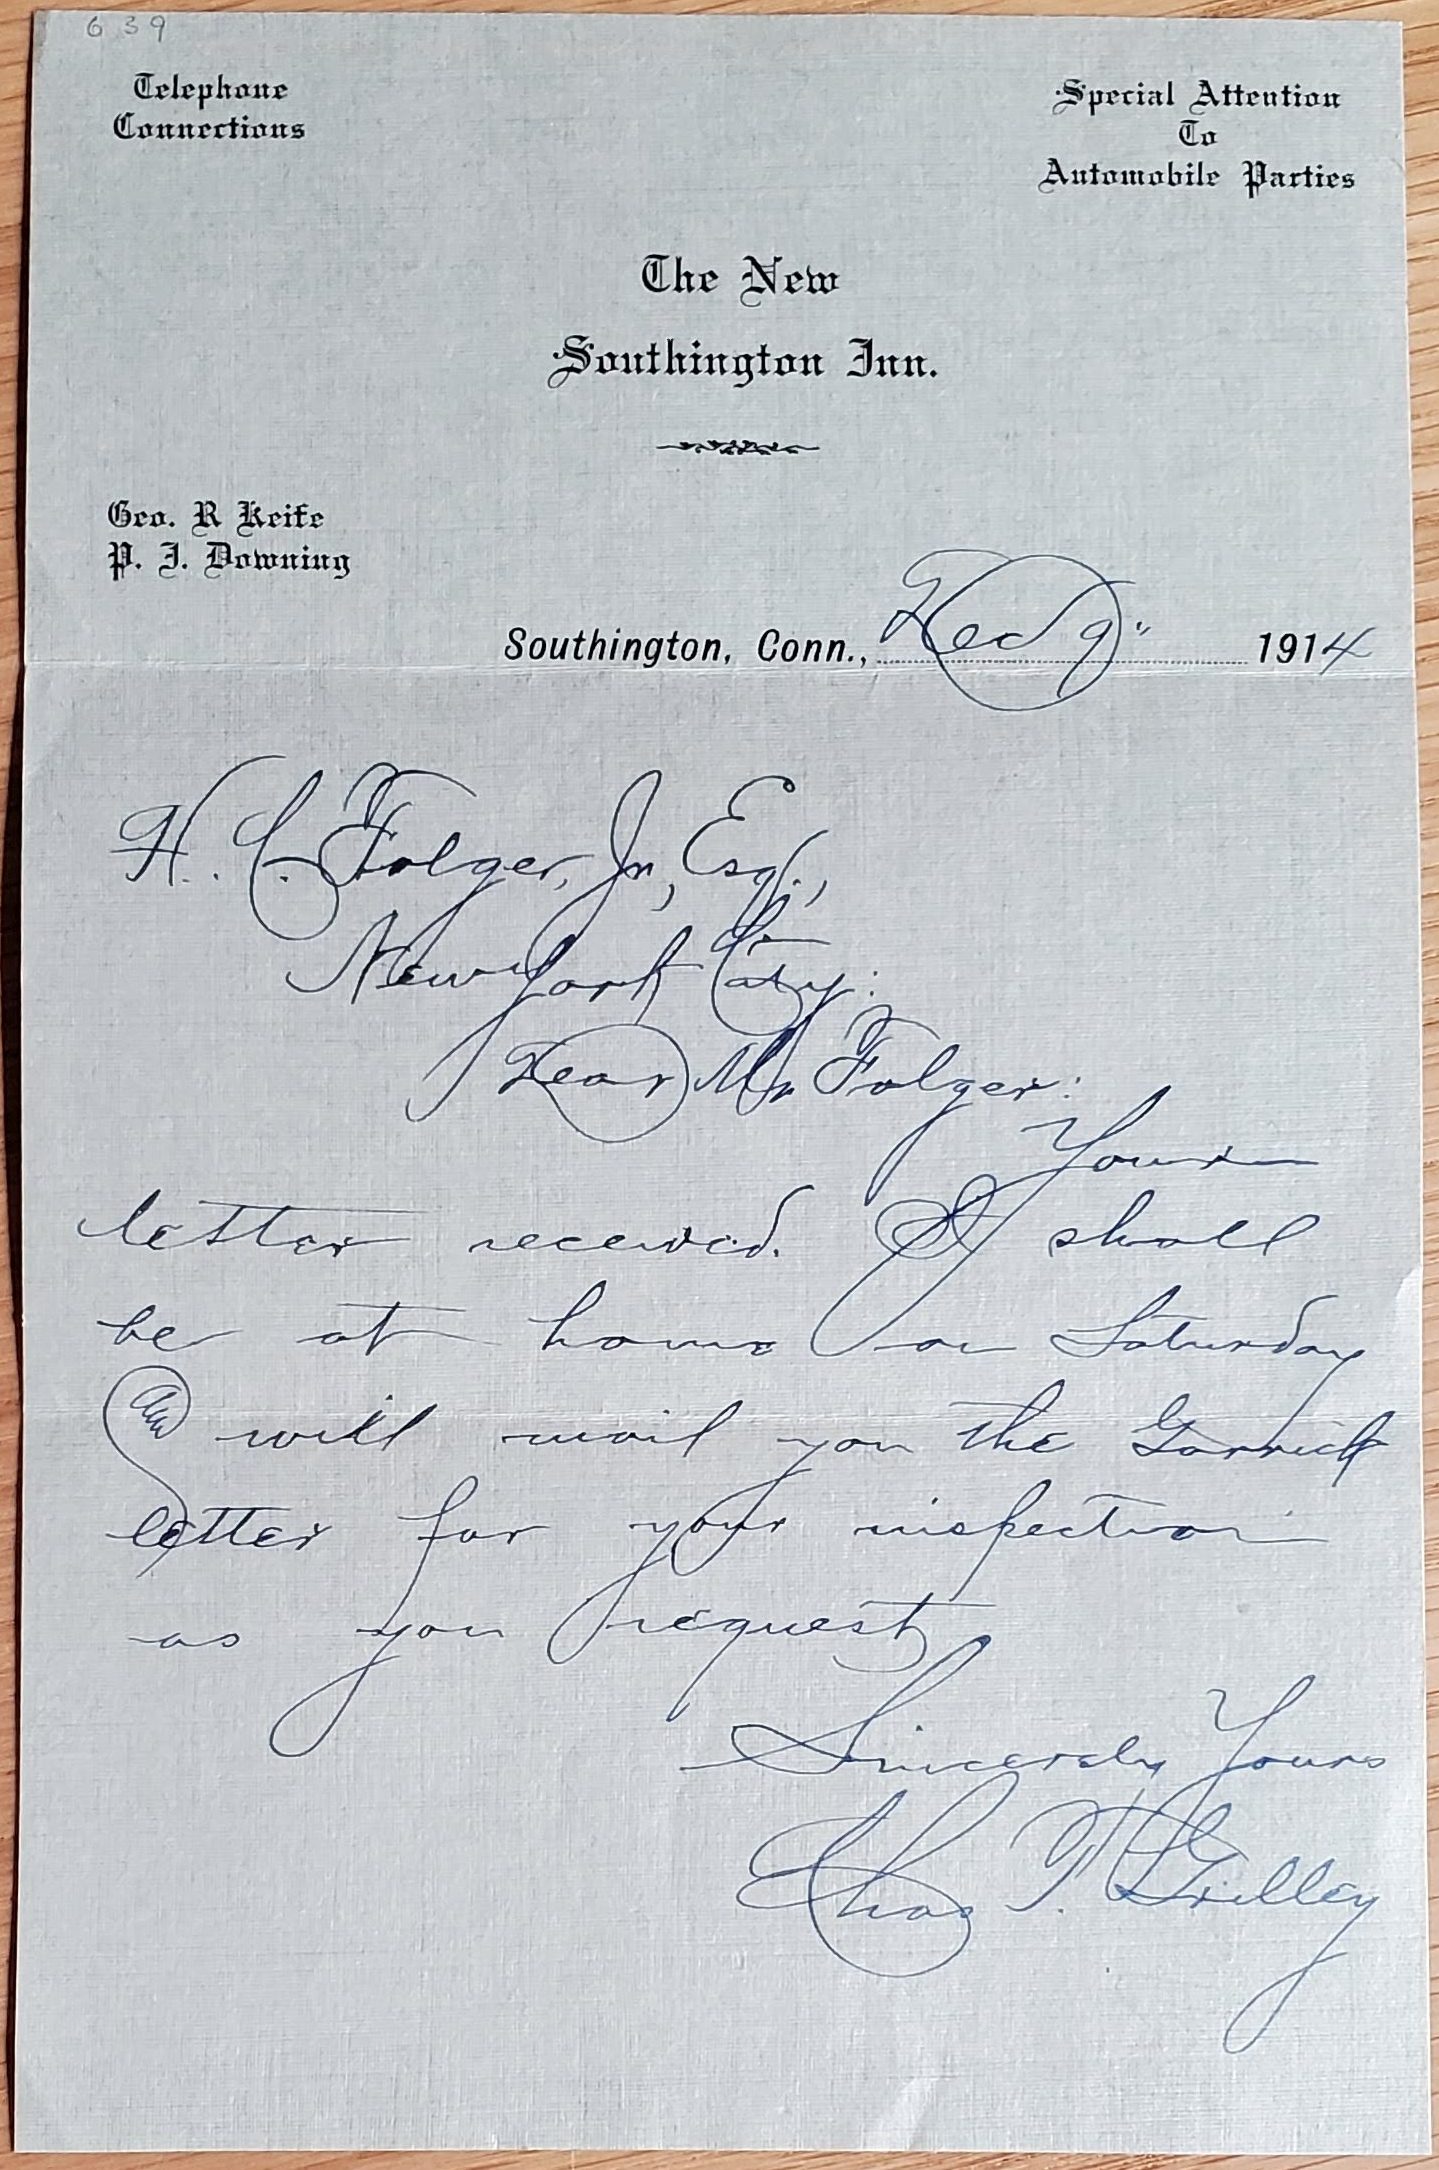 639
Telephone
Connections
Special Attention
To
Automobile Parties
The New
Southington Inn.
Geo. R Keife
P. J. Downing
Southington, Conn., Dec 9" 1914
H. C. Folger, Jr, Esq.,
New York City:
Dear Mr Folger:
Your
letter received. I shall
be at home on Saturday
and will mail you the Garrick
letter for your inspection
as you request
Sincerely Yours
Chas T. Gridley